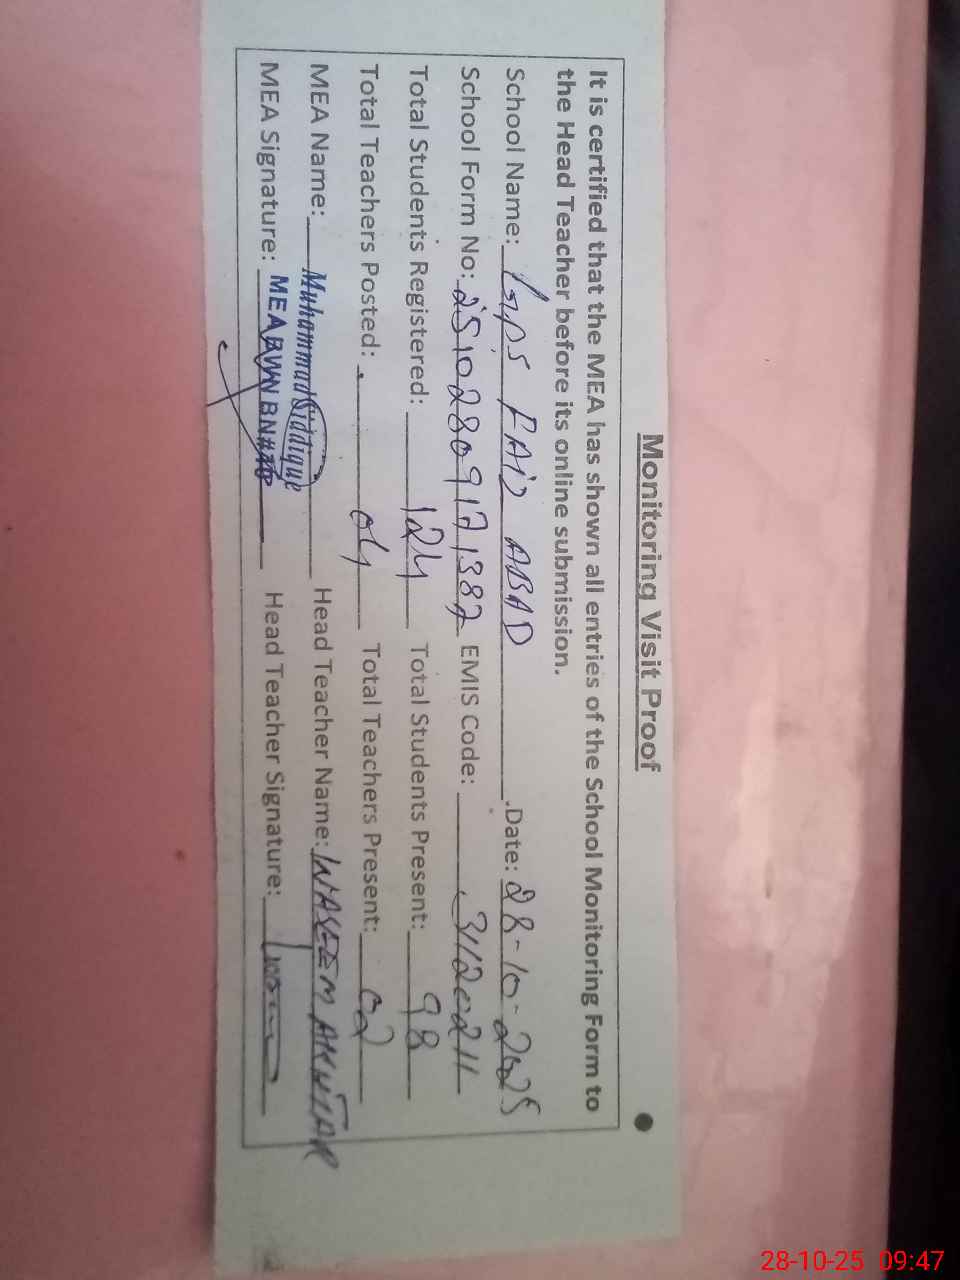 Monitoring Visit Proof
It is certified that the MEA has shown all entries of the School Monitoring Form to
the Head Teacher before its online submission.
School Name: GPS FAIZ ABAD .Date: 28-10-2025
School Form No: 25102809171382 EMIS Code: 31120211
Total Students Registered: 124 Total Students Present: 98
Total Teachers Posted: 04 Total Teachers Present: 02
MEA Name: Muhammad Siddique Head Teacher Name: WASEEM AKHTAR
MEA Signature: MEA BWN BN# Head Teacher Signature:
28-10-25 09:47